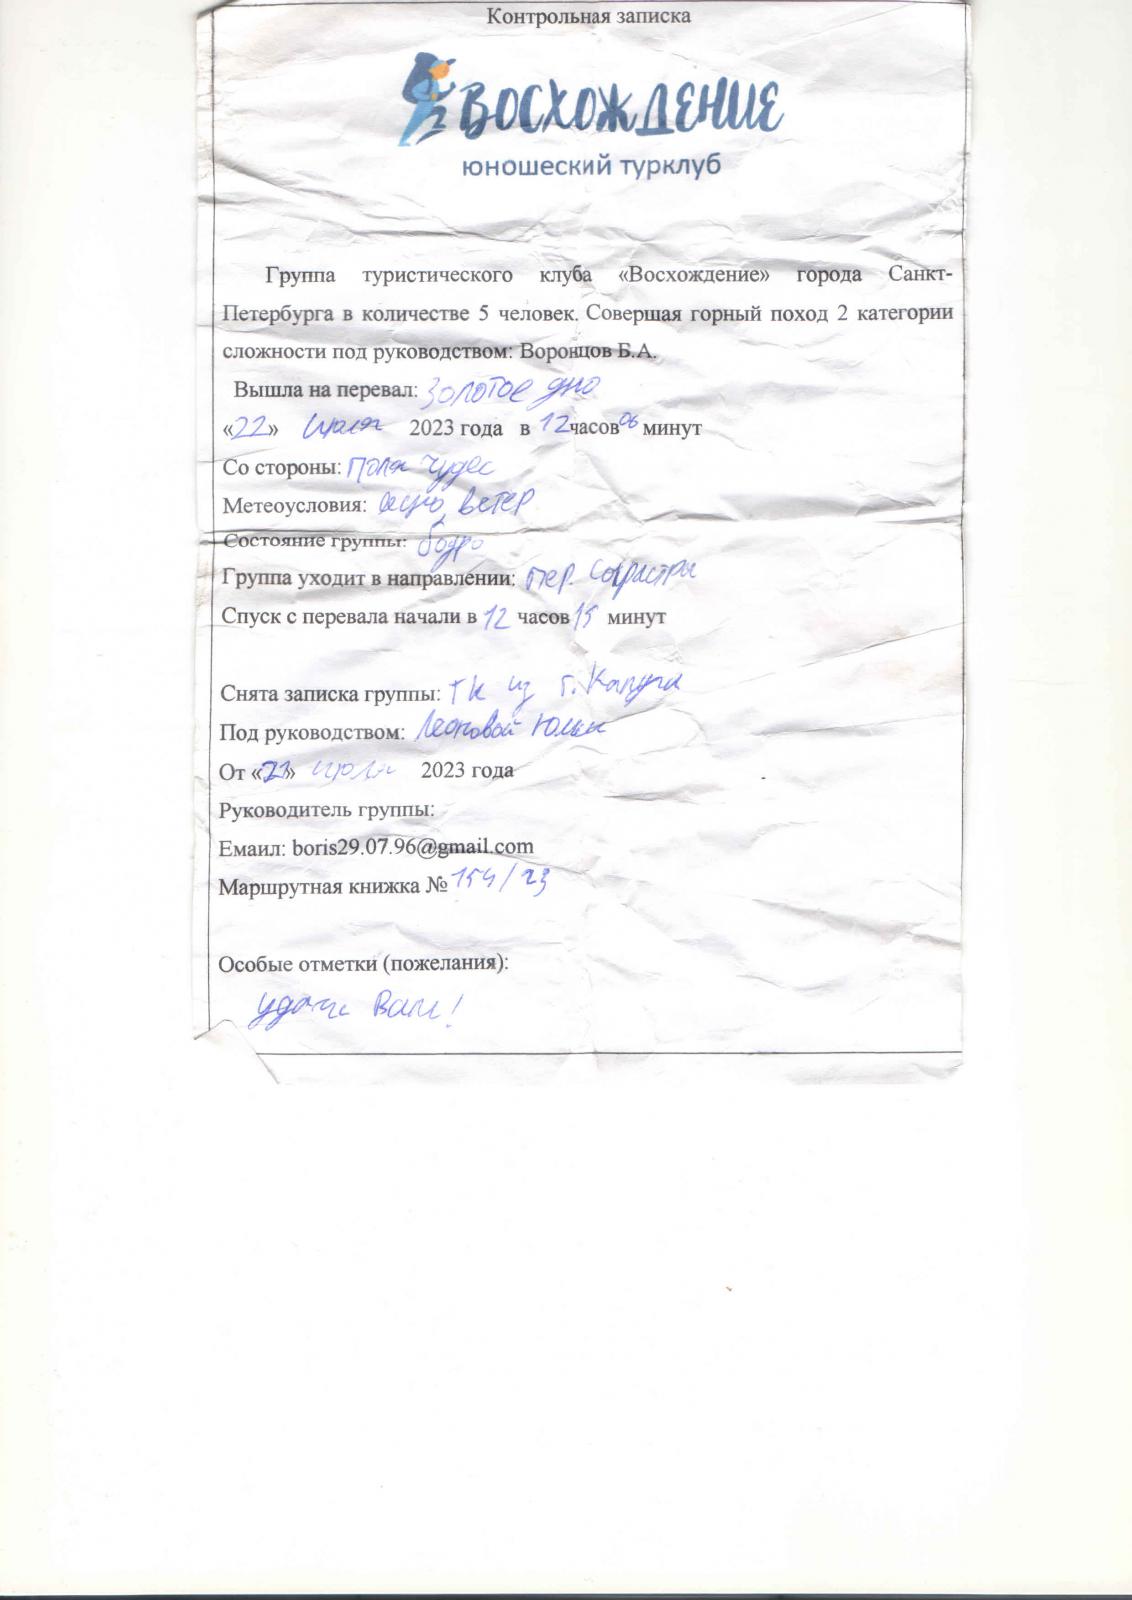 Контрольная записка
ВОСХОЖДЕНИЕ
юношеский турклуб
Группа туристического клуба «Восхождение» города Санкт-
Петербурга в количестве 5 человек. Совершая горный поход 2 категории
сложности под руководством: Воронцов Б.А.
Вышла на перевал: Золотое дно
«22» Июля 2023 года в 12 часов 06 минут
Со стороны: Поля чудес
Метеоусловия: ясно, ветер
Состояние группы: бодро
Группа уходит в направлении: пер.
Спуск с перевала начали в 12 часов 15 минут
Снята записка группы: ТК из г. Калуга
Под руководством: Юлии
От «21» июля 2023 года
Руководитель группы:
Емаил: boris29.07.96@gmail.com
Маршрутная книжка № 154/23
Особые отметки (пожелания):
Удачи Вам!